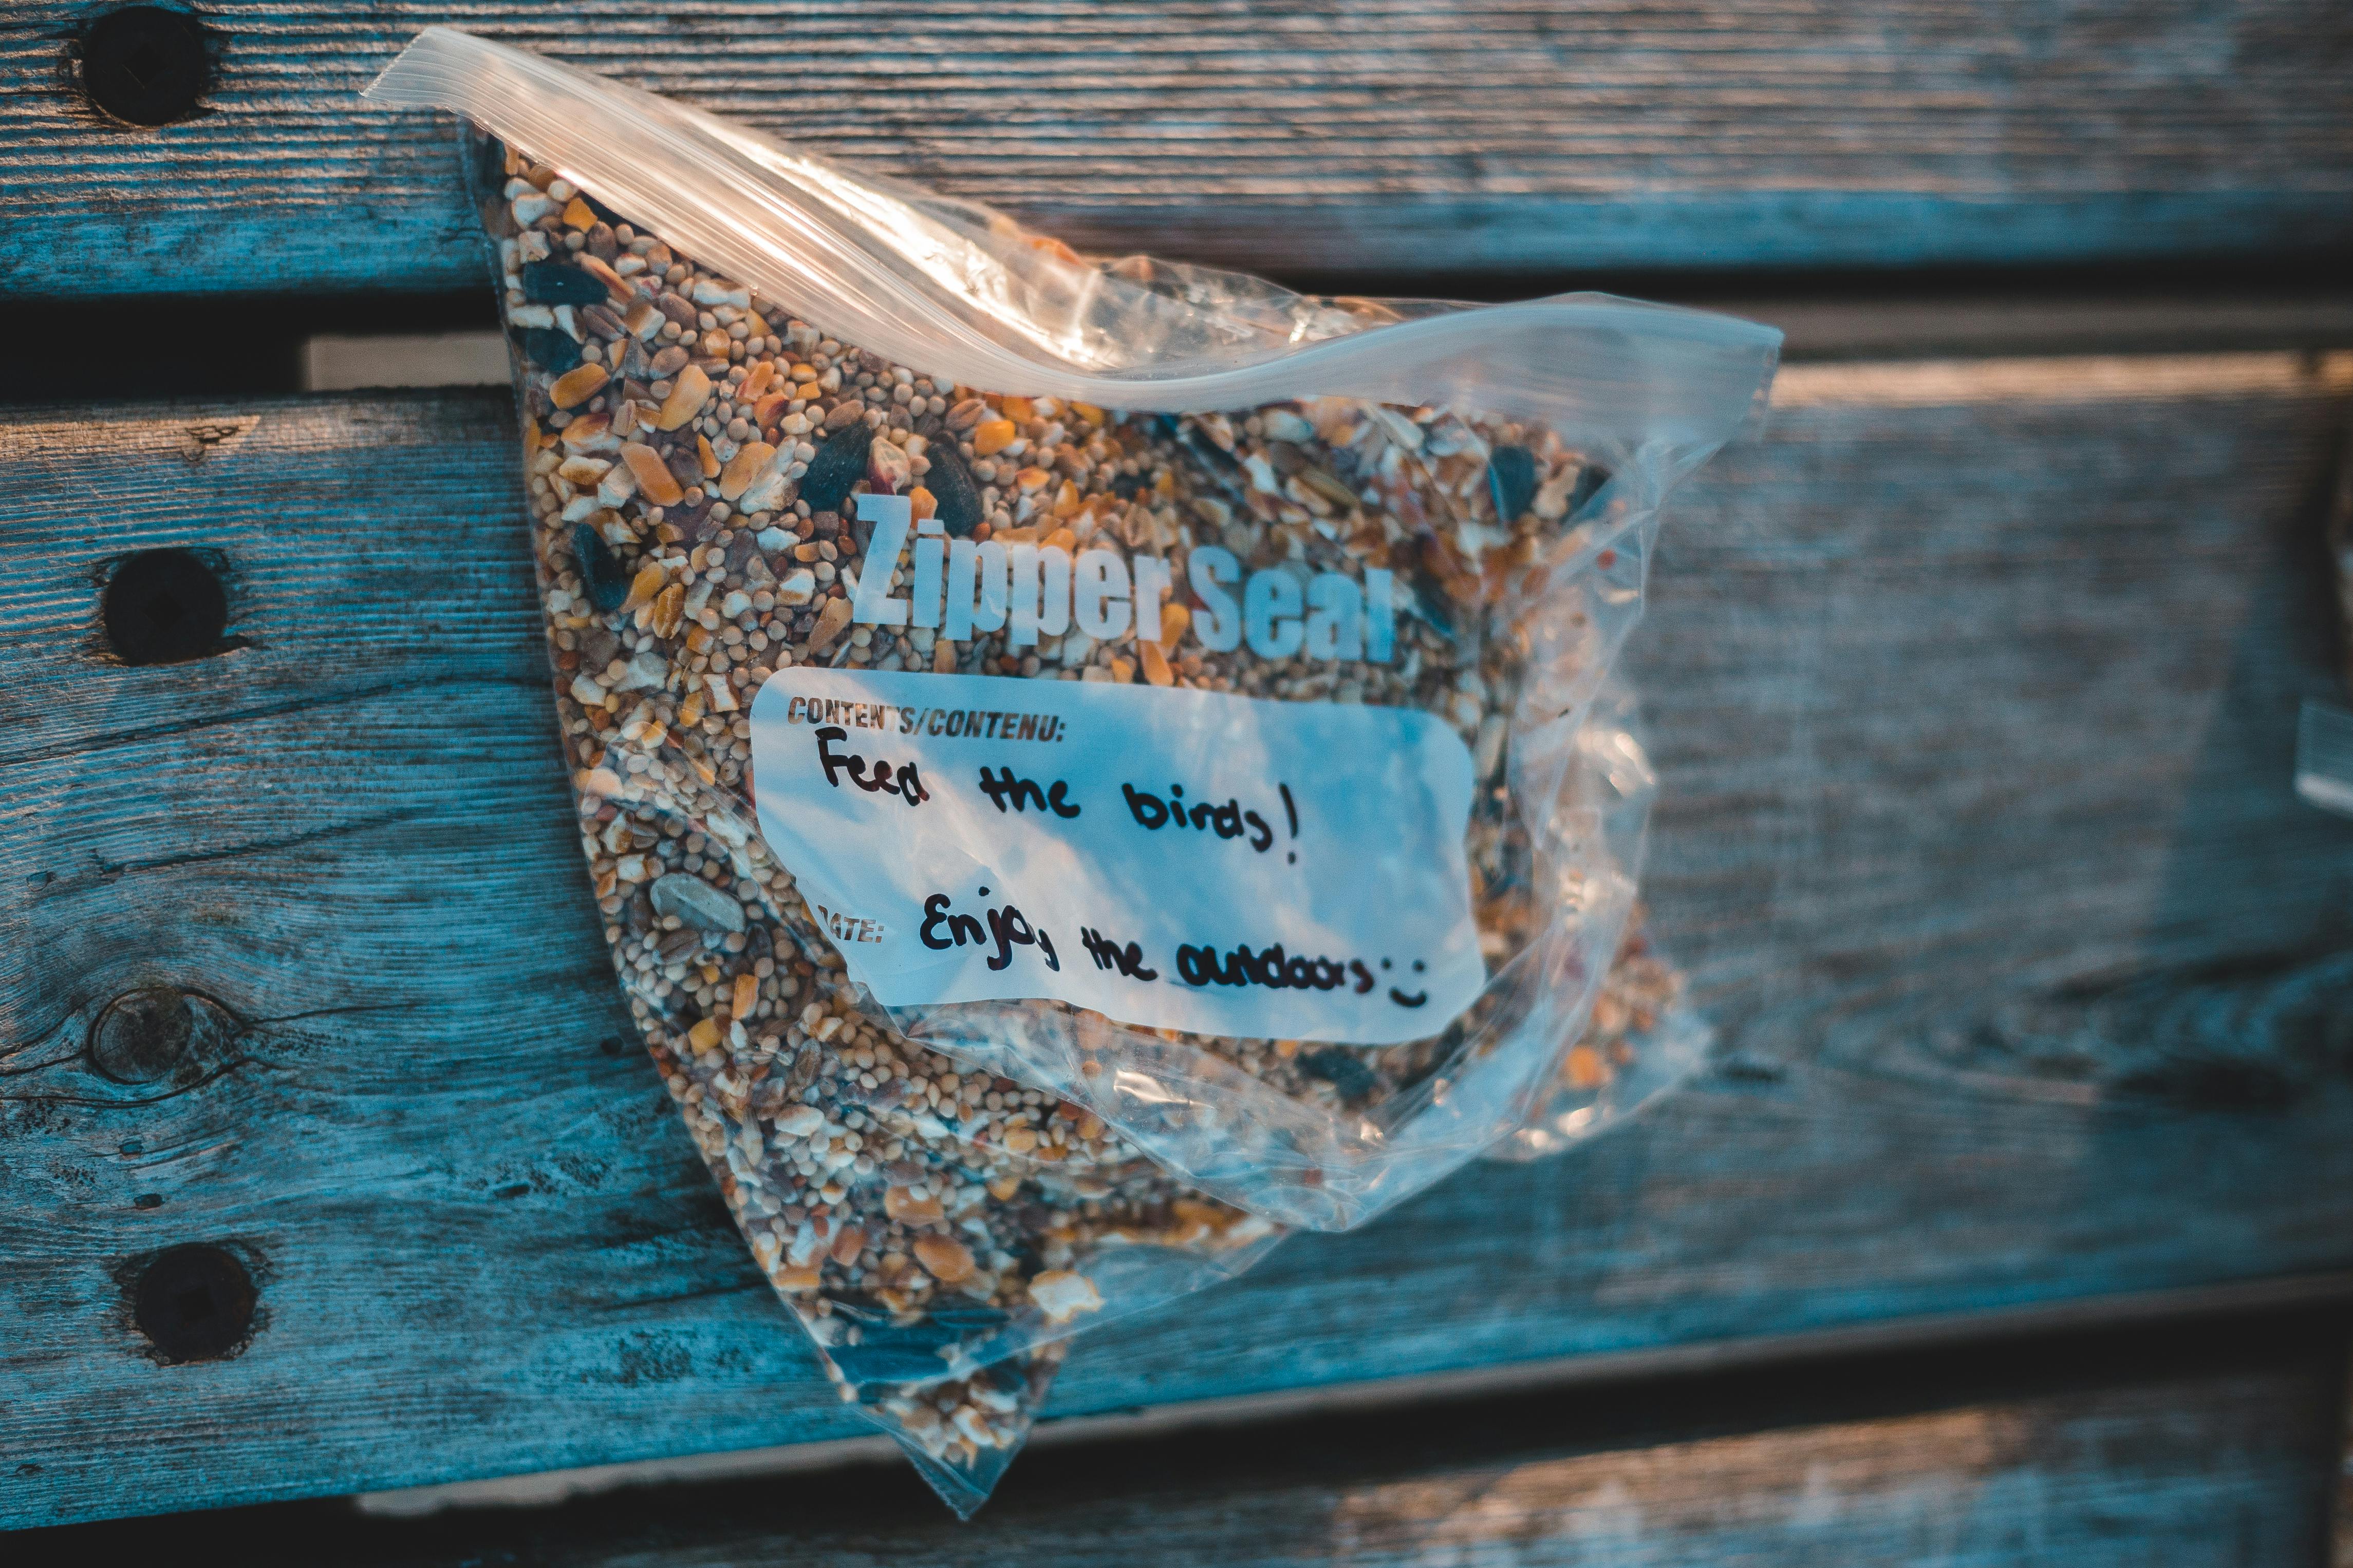 Zipper Seal
CONTENTS/CONTENU:
Feed the birds!
DATE: Enjoy the outdoors :)